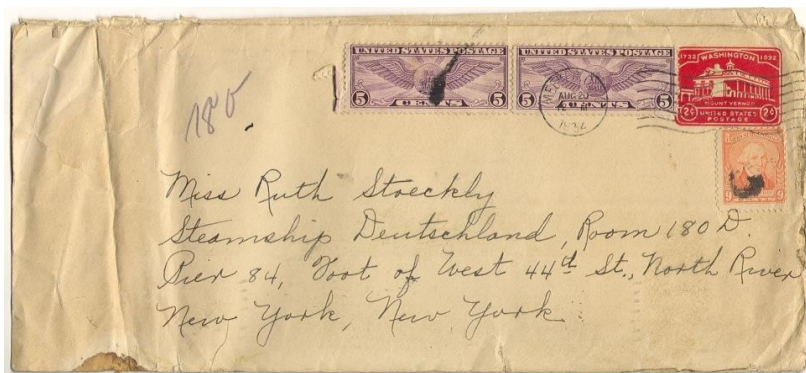 UNITED STATES POSTAGE UNITED STATES POSTAGE
5 CENTS 5 CENTS 5
1732 WASHINGTON 1932
MOUNT VERNON
2¢ UNITED STATES 2¢
POSTAGE
AUG 20
1932
9 9
180
Miss Ruth Stoeckly
Steamship Deutschland, Room 180 D.
Pier 84, Foot of West 44th St., North River
New York, New York